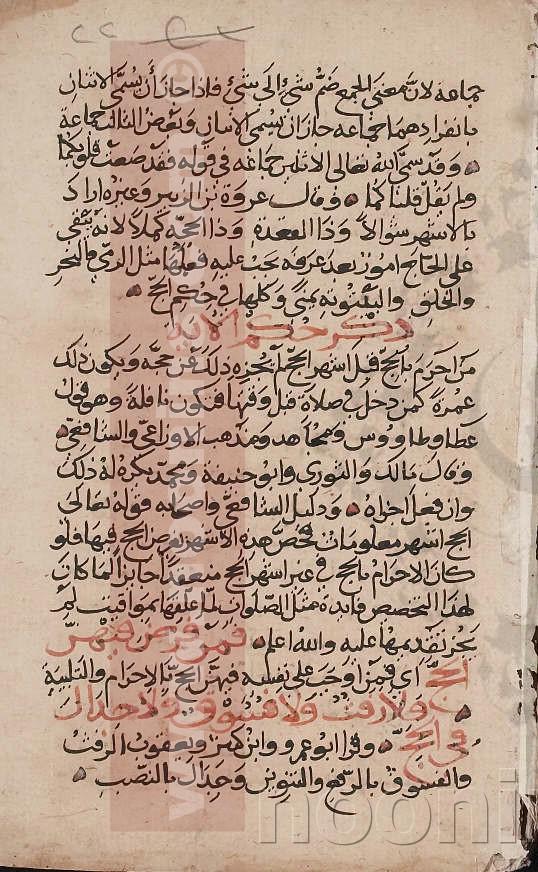 جماعه لانّ معنى الجمع ضمّ شئ الى شئ فاذا جاز أن يسمّى الاثنان
بانفرادهما جماعه جاز ان يسمى الاثنان وبعض الثالث جماعة
وقد سمى الله تعالى الاثنين جماعه في قوله فقد صغت قلوبكما
ولم يقل قلباكما وقال عروة بن الزبير وغيره اراد
بالاشهر شوّالاً وذا القعدة وذا الحجّه كملاً لانه يبقى
على الحاج امور بعد عرفه يجب عليه فعلها مثل الرمى والنحر
والحلق والبيتوته بمنى وكلها في حكم الحج
ذكر حكم الاية
من احرم بالحج قبل اشهر الحج لم يجزه ذلك عن حجه ويكون ذلك
عمرة كمن دخل في صلاة قبل وقتها فتكون نافلة وهو قول
عطا وطاووس ومجاهد ومذهب الاوزاعي والشافعي
وقال مالك والثوري وابو حنيفة ومحمد يكره له ذلك
وان فعل اجزاه ودليل الشافعي واصحابه قوله تعالى
الحج اشهر معلومات فخصّ هذه الاشهر بفرض الحج فيها فلو
كان الاحرام بالحج في غير اشهر الحج منعقداً جايزاً لما كان
لهذا التخصيص فايدة مثل الصلوات علّقها بمواقيت لم
يجز تقديمها عليه والله اعلم فمن فرض فيهنّ
الحجّ اي فمن اوجب على نفسه فيهن الحج بالاحرام والتلبية
فلا رفث ولا فسوق ولا جدال
في الحجّ وقرا ابو عمرو وابن كثير ويعقوب الرفث
والفسوق بالرفع والتنوين وجدال بالنصب
nooni